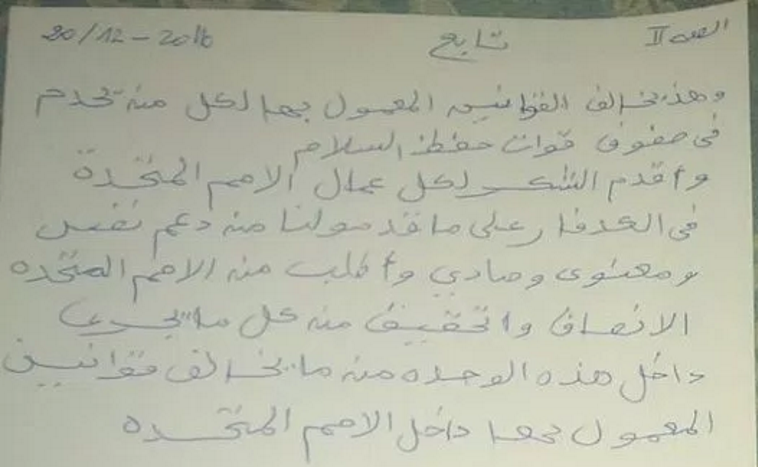 الصفحة II تابع 20/12-2016
وهذ يخالف القوانين المعمول بها لكل منه تخدم
في صفوف قوات حفظ السلام
وأقدم الشكر لكل عمال الامم المتحدة
في على ما قدمولنا منه دعم نفسي
ومعنوي ومادي وأطلب منه الامم المتحده
الانصاف واتحقيق منه كل ما يجري
داخل هذه الوحده منه ما يخالف قوانين
المعمول بها داخل الامم المتحده